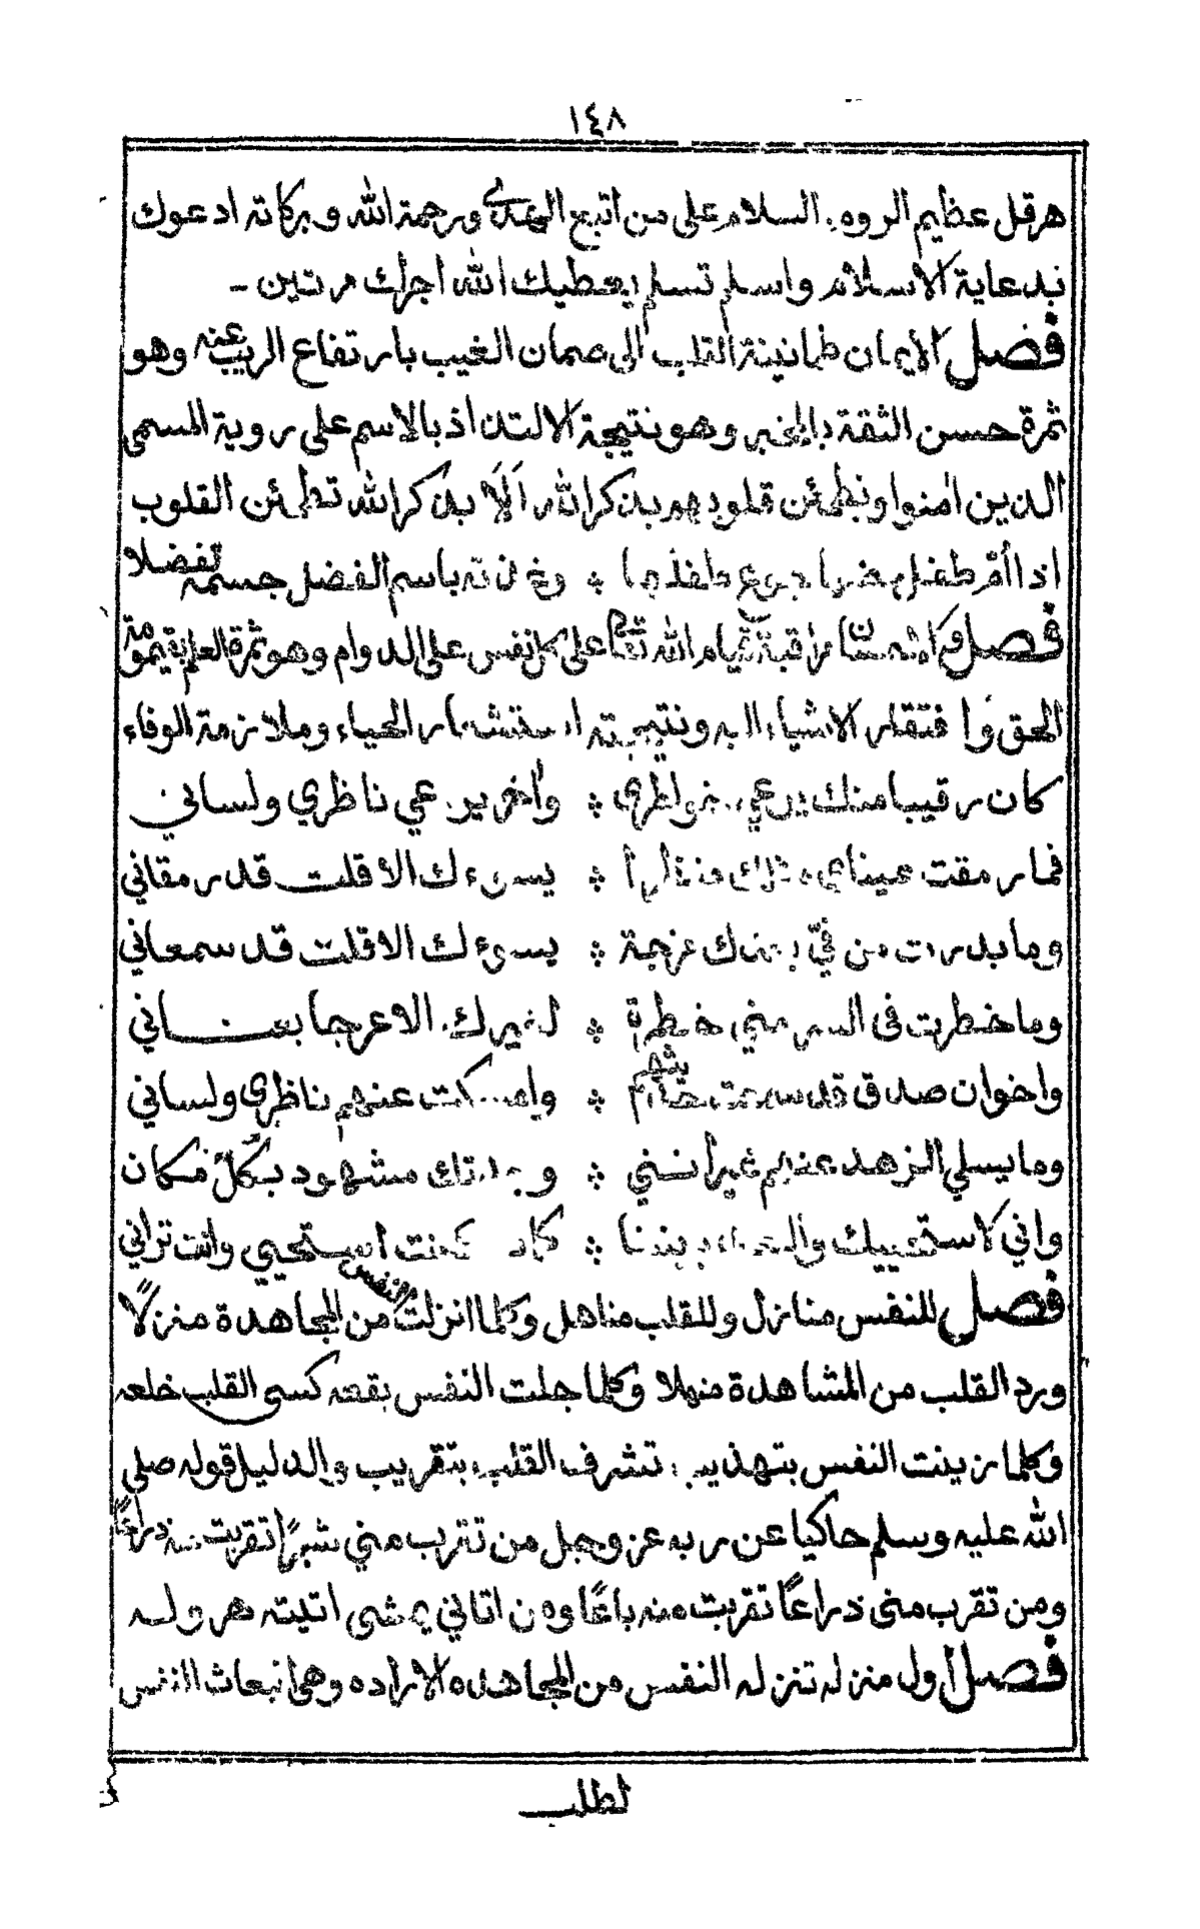 ١٤٨
هرقل عظيم الروم السلام على من اتبع الهدى ورحمة الله وبركاته ادعوك
بدعاية الاسلام واسلم تسلم يعطيك الله اجرك مرتين -
فصل الايمان طمانينة القلب الى ضمان الغيب بارتفاع الريب عنه وهو
ثمرة حسن الثقة بالمخبر وهو نتيجة الالتذاذ بالاسم على روية المسمى
الذين امنوا وتطمئن قلوبهم بذكر الله الا بذكر الله تطمئن القلوب
اذا أم طفل ؞ باسم الفضل جسمه تفضلا
فصل مراقبة قيام الله تعالى على كل نفس على الدوام وهو ثمرة العلم بقيومية
الحق وافتقار الاشياء اليه ونتيجته استشعار الحياء وملازمة الوفاء
كان رقيبا منك يرعى خواطري ؞ واخر يرعى ناظري ولساني
فما رمقت عيناي منظرا ؞ يسوءك الا قلت قد رمقاني
وما بدرت من فيّ بعدك مزحة ؞ يسوءك الا قلت قد سمعاني
وما خطرت فى السر مني خطرة ؞ لغيرك الا عرجا بعناني
واخوان صدق قد سئمت ؞ وامسكت عنهم ناظري ولساني
وما يسلي الزهد عنهم غير انني ؞ وجدتك مشهود بكلّ مكان
واني لاستحييك ؞ كما كنت استحيي وانت تراني
فصل للنفس منازل وللقلب مناهل وكلما انزلت النفس من المجاهدة منزلاً
ورد القلب من المشاهدة منهلا وكلما جلت النفس بقعه كسى القلب خلعه
وكلما زينت النفس بتهذيب تشرف القلب بتقريب والدليل قوله صلى
الله عليه وسلم حاكيا عن ربه عز وجل من تقرب مني شبراً تقربت منه ذراعاً
ومن تقرب منى ذراعاً تقربت منه باعاً ومن اتاني يمشى اتيته هروله
فصل اول منزله تنزله النفس من المجاهده الاراده وهى انبعاث النفس
لطلب